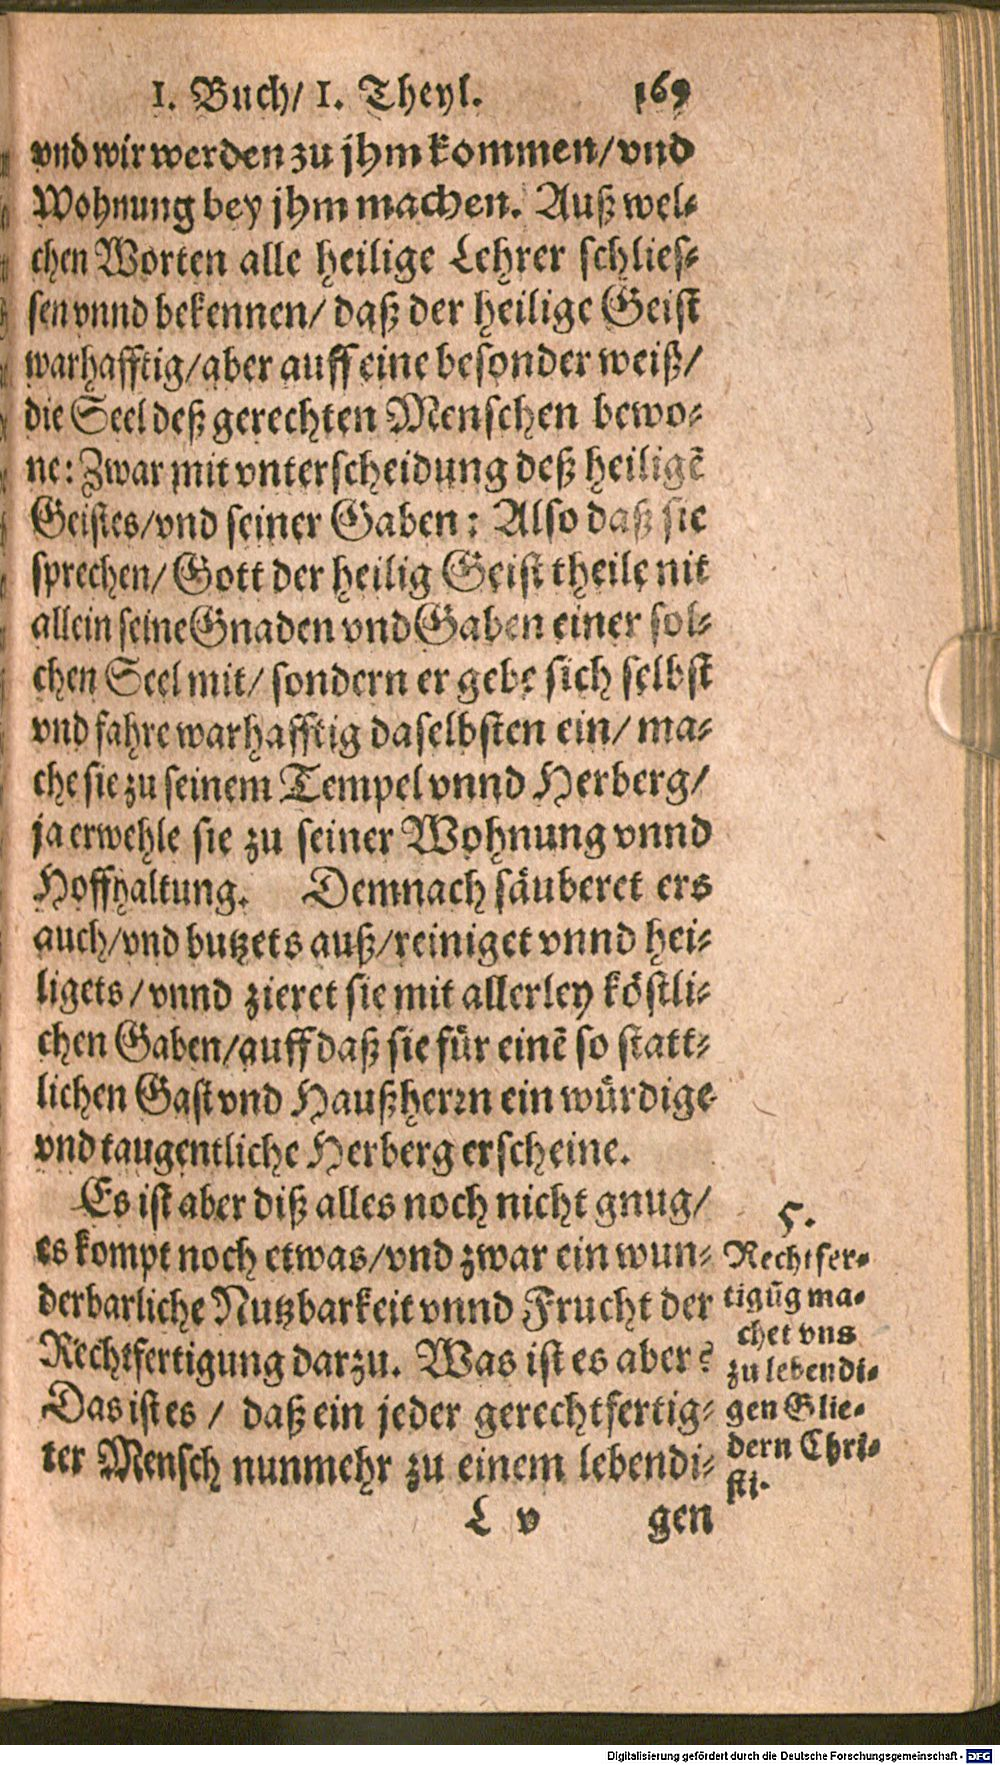 1. Buch/ 1. Theyl. 169
vnd wir werden zu jhm kommen/ vnd
Wohnung bey jhm machen. Auß wel-
chen Worten alle heilige Lehrer schlies-
sen vnnd bekennen/ daß der heilige Geist
warhafftig/ aber auff eine besonder weiß/
die Seel deß gerechten Menschen bewo-
ne: Zwar mit vnterscheidung deß heiligẽ
Geistes/ vnd seiner Gaben: Also daß sie
sprechen/ Gott der heilig Geist theile nit
allein seine Gnaden vnd Gaben einer sol-
chen Seel mit/ sondern er gebe sich selbst
vnd fahre warhafftig daselbsten ein/ ma-
che sie zu seinem Tempel vnnd Herberg/
ja erwehle sie zu seiner Wohnung vnnd
Hoffhaltung. Demnach säuberet ers
auch/ vnd butzets auß/ reiniget vnnd hei-
ligets/ vnnd zieret sie mit allerley köstli-
chen Gaben/ auff daß sie für einẽ so statt-
lichen Gast vnd Haußherrn ein würdige
vnd taugentliche Herberg erscheine.
Es ist aber diß alles noch nicht gnug/
es kompt noch etwas/ vnd zwar ein wun-
derbarliche Nutzbarkeit vnnd Frucht der
Rechtfertigung darzu. Was ist es aber?
Das ist es/ daß ein jeder gerechtfertig-
ter Mensch nunmehr zu einem lebendi-
L v gen
5.
Rechtfer-
tigũg ma-
chet vns
zu lebendi-
gen Glie-
dern Chri-
sti.
Digitalisierung gefördert durch die Deutsche Forschungsgemeinschaft - DFG